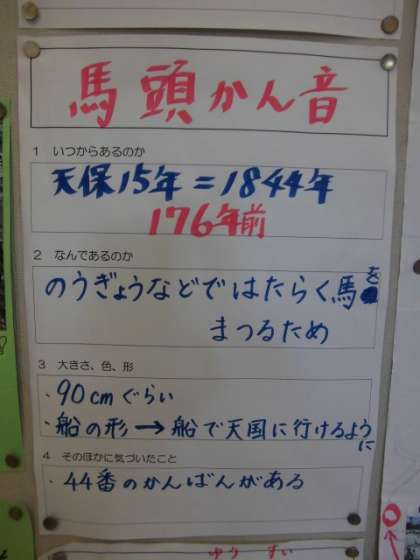 馬頭かん音
1 いつからあるのか
天保15年=1844年
176年前
2 なんであるのか
のうぎょうなどではたらく馬を
まつるため
3 大きさ、色、形
・90cmぐらい
・船の形→船で天国に行けるように
4 そのほかに気づいたこと
・44番のかんばんがある
ゆう すい